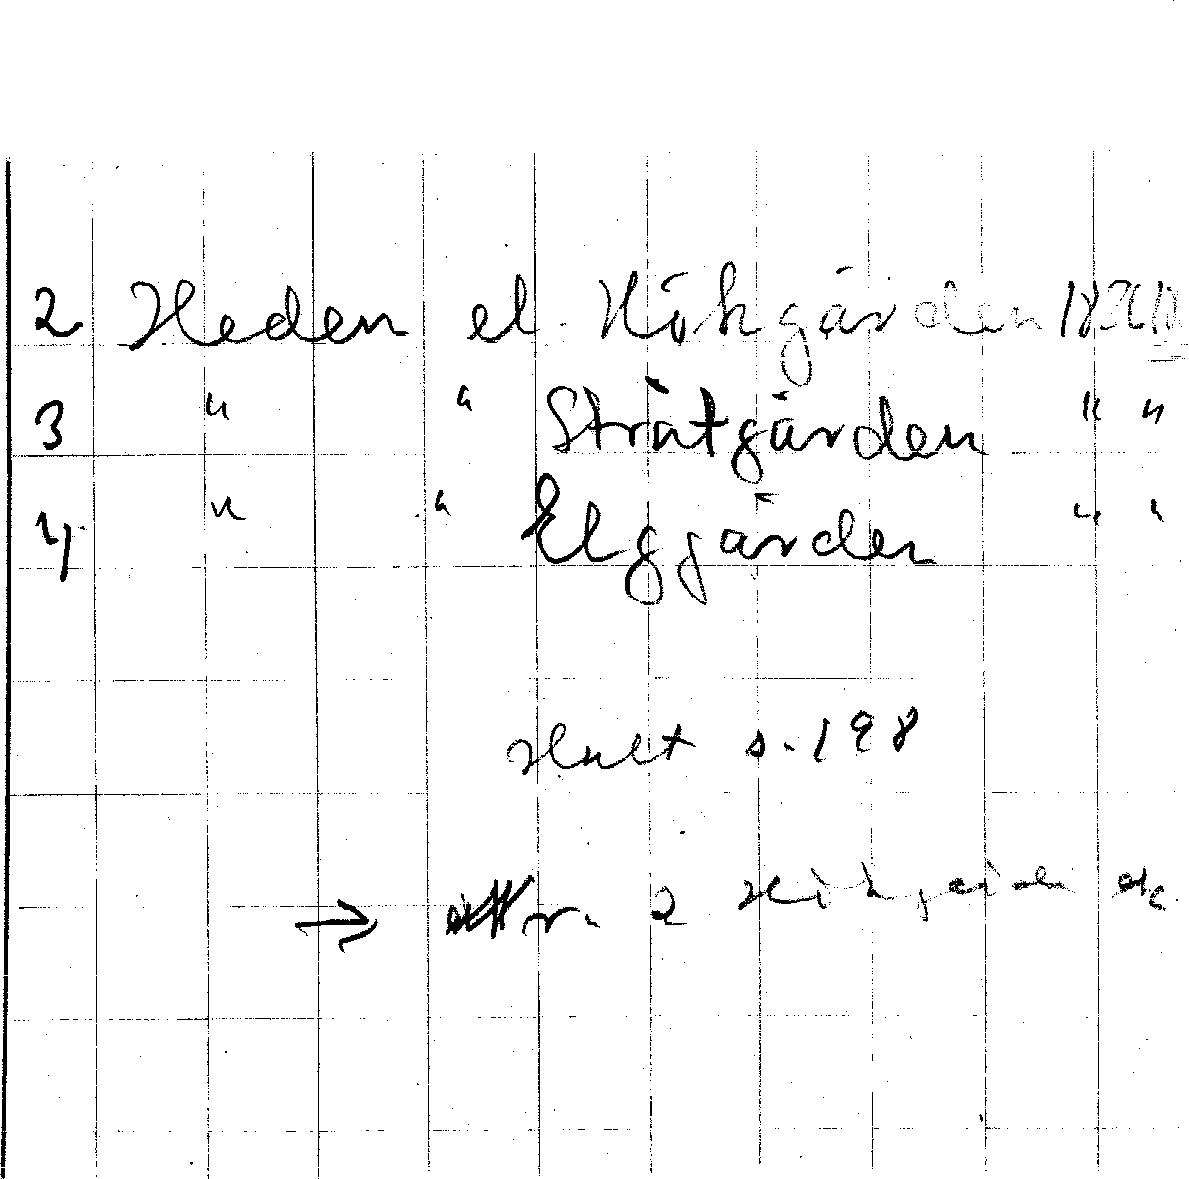 2 Heden el. Hökgården
3 " " Stråtgården " "
4 " " Elggården " "
Hult s. 198
→ nr. 2 Hökgården etc.